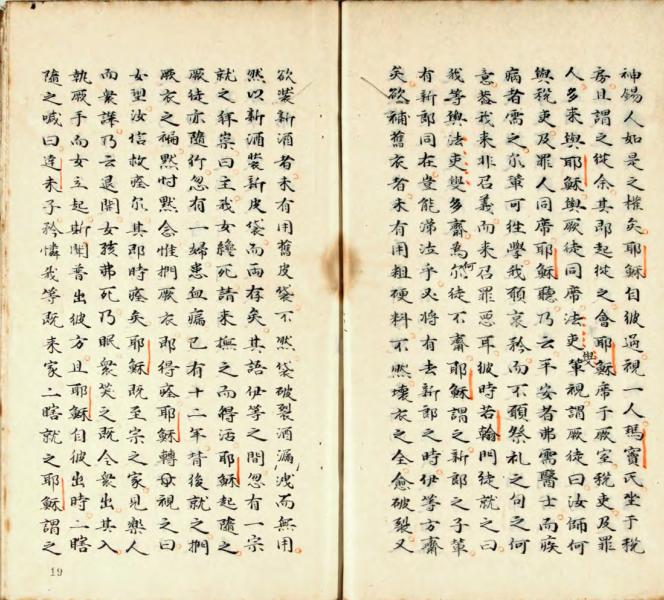 神錫人如是之權矣耶穌自彼過視一人瑪竇氏坐于稅
房且謂之從余其即起從之會耶穌席于厥室稅吏及罪
人多来與耶穌與厥徒同席法吏輩視謂厥徒曰汝師何
與稅吏及罪人同席耶穌聽乃云平安者弗需醫士而疾
病者需之尔輩可往學我願哀矜而不願祭礼之句之何
意蓋我来非召義而来召罪惡耳彼時若翰門徒就之曰
我等與法吏多齋為何尔徒不齋耶穌謂之新郎之子輩
有新郎同在豈能涕泣乎又將有去新郎之時伊等方齋
矣欲補舊衣者未有用粗硬料不然壞衣之全愈破裂又
欲裝新酒者未有用舊皮袋不然袋破裂酒漏洩而無用
然以新酒裝新皮袋而両存矣其語伊等之間忽有一宗
就之拜祟曰主我女纔死請来撫之而得活耶穌起隨之
厥徒亦隨行忽有一婦患血漏已有十二年背後就之捫
厥衣之褊默忖默念惟捫厥衣即得痊耶穌轉身視之曰
女望汝信救痊尔其即時痊矣耶穌既至宗之家見樂人
而衆譁乃云退開女孩弗死乃眠衆笑之既令衆出其入
執厥手而女立起斯聞普出彼方且耶穌自彼出時二瞎
隨之喊曰達未子矜憐我等既来家二瞎就之耶穌謂之
19